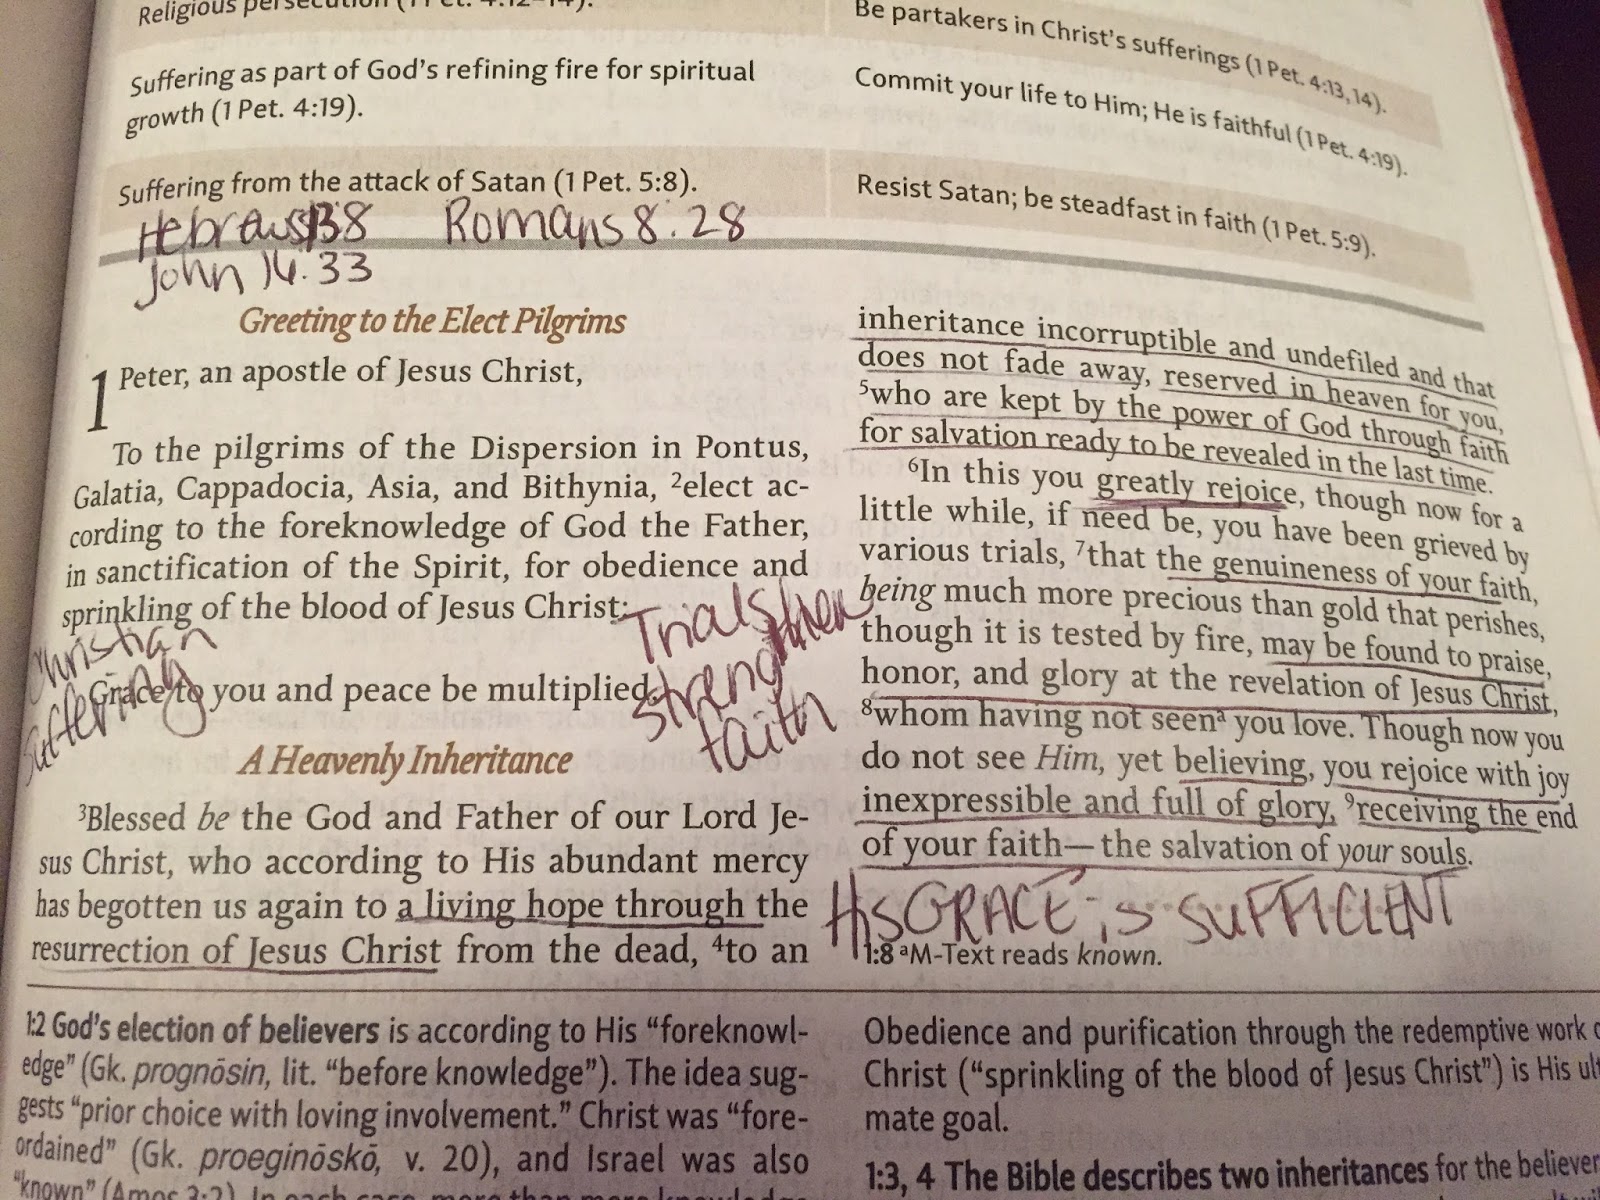 Religious persecution (1 Pet. 4:12–14).
Suffering as part of God's refining fire for spiritual
growth (1 Pet. 4:19).
Suffering from the attack of Satan (1 Pet. 5:8).
Be partakers in Christ's sufferings (1 Pet. 4:13, 14).
Commit your life to Him; He is faithful (1 Pet. 4:19).
Resist Satan; be steadfast in faith (1 Pet. 5:9).
Hebrews 13:8 Romans 8:28
John 16:33
Greeting to the Elect Pilgrims
1 Peter, an apostle of Jesus Christ,
To the pilgrims of the Dispersion in Pontus,
Galatia, Cappadocia, Asia, and Bithynia, ²elect ac-
cording to the foreknowledge of God the Father,
in sanctification of the Spirit, for obedience and
sprinkling of the blood of Jesus Christ:
Christian
Suffering
Grace to you and peace be multiplied.
Trials
strengthen
faith
A Heavenly Inheritance
³Blessed be the God and Father of our Lord Je-
sus Christ, who according to His abundant mercy
has begotten us again to a living hope through the
resurrection of Jesus Christ from the dead, ⁴to an
inheritance incorruptible and undefiled and that
does not fade away, reserved in heaven for you,
⁵who are kept by the power of God through faith
for salvation ready to be revealed in the last time.
⁶In this you greatly rejoice, though now for a
little while, if need be, you have been grieved by
various trials, ⁷that the genuineness of your faith,
being much more precious than gold that perishes,
though it is tested by fire, may be found to praise,
honor, and glory at the revelation of Jesus Christ,
⁸whom having not seenᵃ you love. Though now you
do not see Him, yet believing, you rejoice with joy
inexpressible and full of glory, ⁹receiving the end
of your faith—the salvation of your souls.
HIS GRACE is SUFFICIENT
1:8 ᵃM-Text reads known.
1:2 God's election of believers is according to His "foreknowl-
edge" (Gk. prognōsin, lit. "before knowledge"). The idea sug-
gests "prior choice with loving involvement." Christ was "fore-
ordained" (Gk. proeginōskō, v. 20), and Israel was also
"known" (Amos 3:2). In each case, more than mere knowledge
Obedience and purification through the redemptive work
Christ ("sprinkling of the blood of Jesus Christ") is His ulti
mate goal.
1:3, 4 The Bible describes two inheritances for the believer